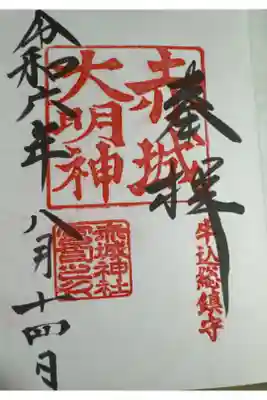 奉拝
牛込総鎮守
赤城
大明神
赤城神社
令和六年八月十四日